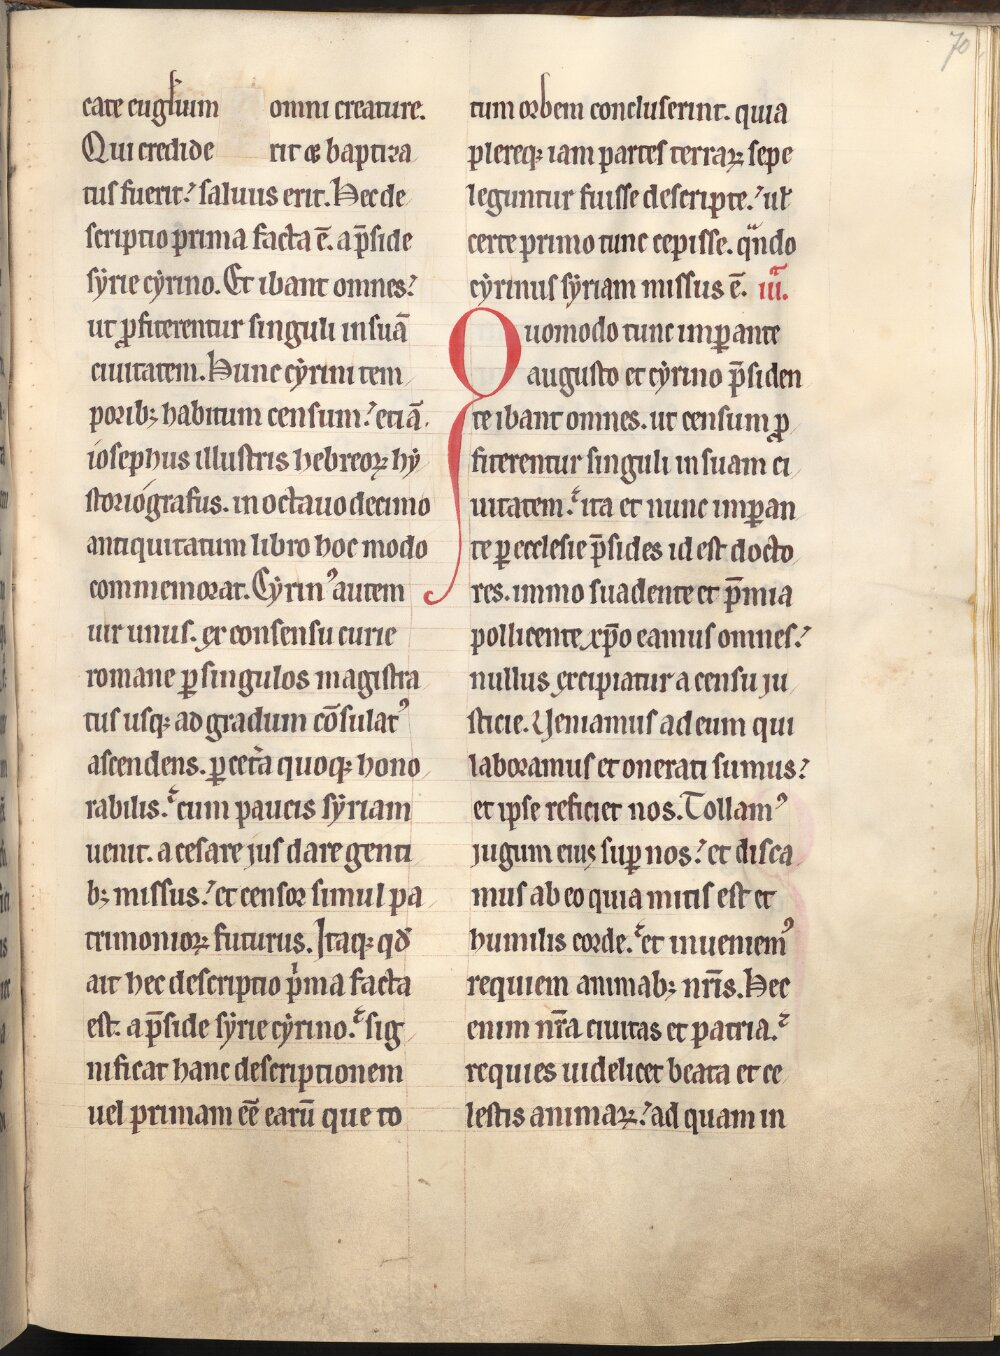 70
cate euglium omni creature.
Qui credide rit & baptiza
tus fuerit? saluus erit. Hec de
scriptio prima facta ē. a p̄side
syrie cyrino. Et ibant omnes?
ut ꝓfiterentur singuli in suā
ciuitatem. Hunc cyrini tem
porib; habitum censum? etiā.
iosephus illustris hebreoꝝ hy
storiografus. in octauo decimo
antiquitatum libro hoc modo
commemorat. Cyrinꝰ autem
uir unus. ex consensu curie
romane ꝑ singulos magistra
tus usqꝫ ad gradum cōsulatꝰ
ascendens. ꝑ cet̾a quoqꝫ hono
rabilis. cum paucis syriam
uenit. a cesare jus dare genti
b; missus? et censor simul pa
trimonioꝝ futurus. Itaqꝫ qđ
ait hec descriptio pͥma facta
est. a p̄side syrie cyrino. sig
nificat hanc descriptionem
uel primam eē̄ earū que to
tum orbem concluserint. quia
plereqꝫ iam partes terraꝝ sepe
leguntur fuisse descripte? ul̵
certe primo tunc cepisse. qͣndo
cyrinus syriam missus ē. iii.
Quomodo tunc imꝑante
augusto et cyrino p̄siden
te ibant omnes. ut censum ꝓ
fiterentur singuli in suam ci
uitatem. ita et nunc imꝑan
te ꝑ ecclesie p̄sides id est docto
res. immo suadente et p̄mia
pollicente xp̄o eamus omnes?
nullus excipiatur a censu ju
sticie. Ueniamus ad eum qui
laboramus et onerati sumus?
et ipse reficiet nos. Tollamꝰ
jugum eius suꝑ nos? et disca
mus ab eo quia mitis est et
humilis corde. et inueniemꝰ
requiem animab; nr̄is. Hec
enim nr̄a ciuitas et patria.
requies uidelicet beata et ce
lestis animaꝝ? ad quam in